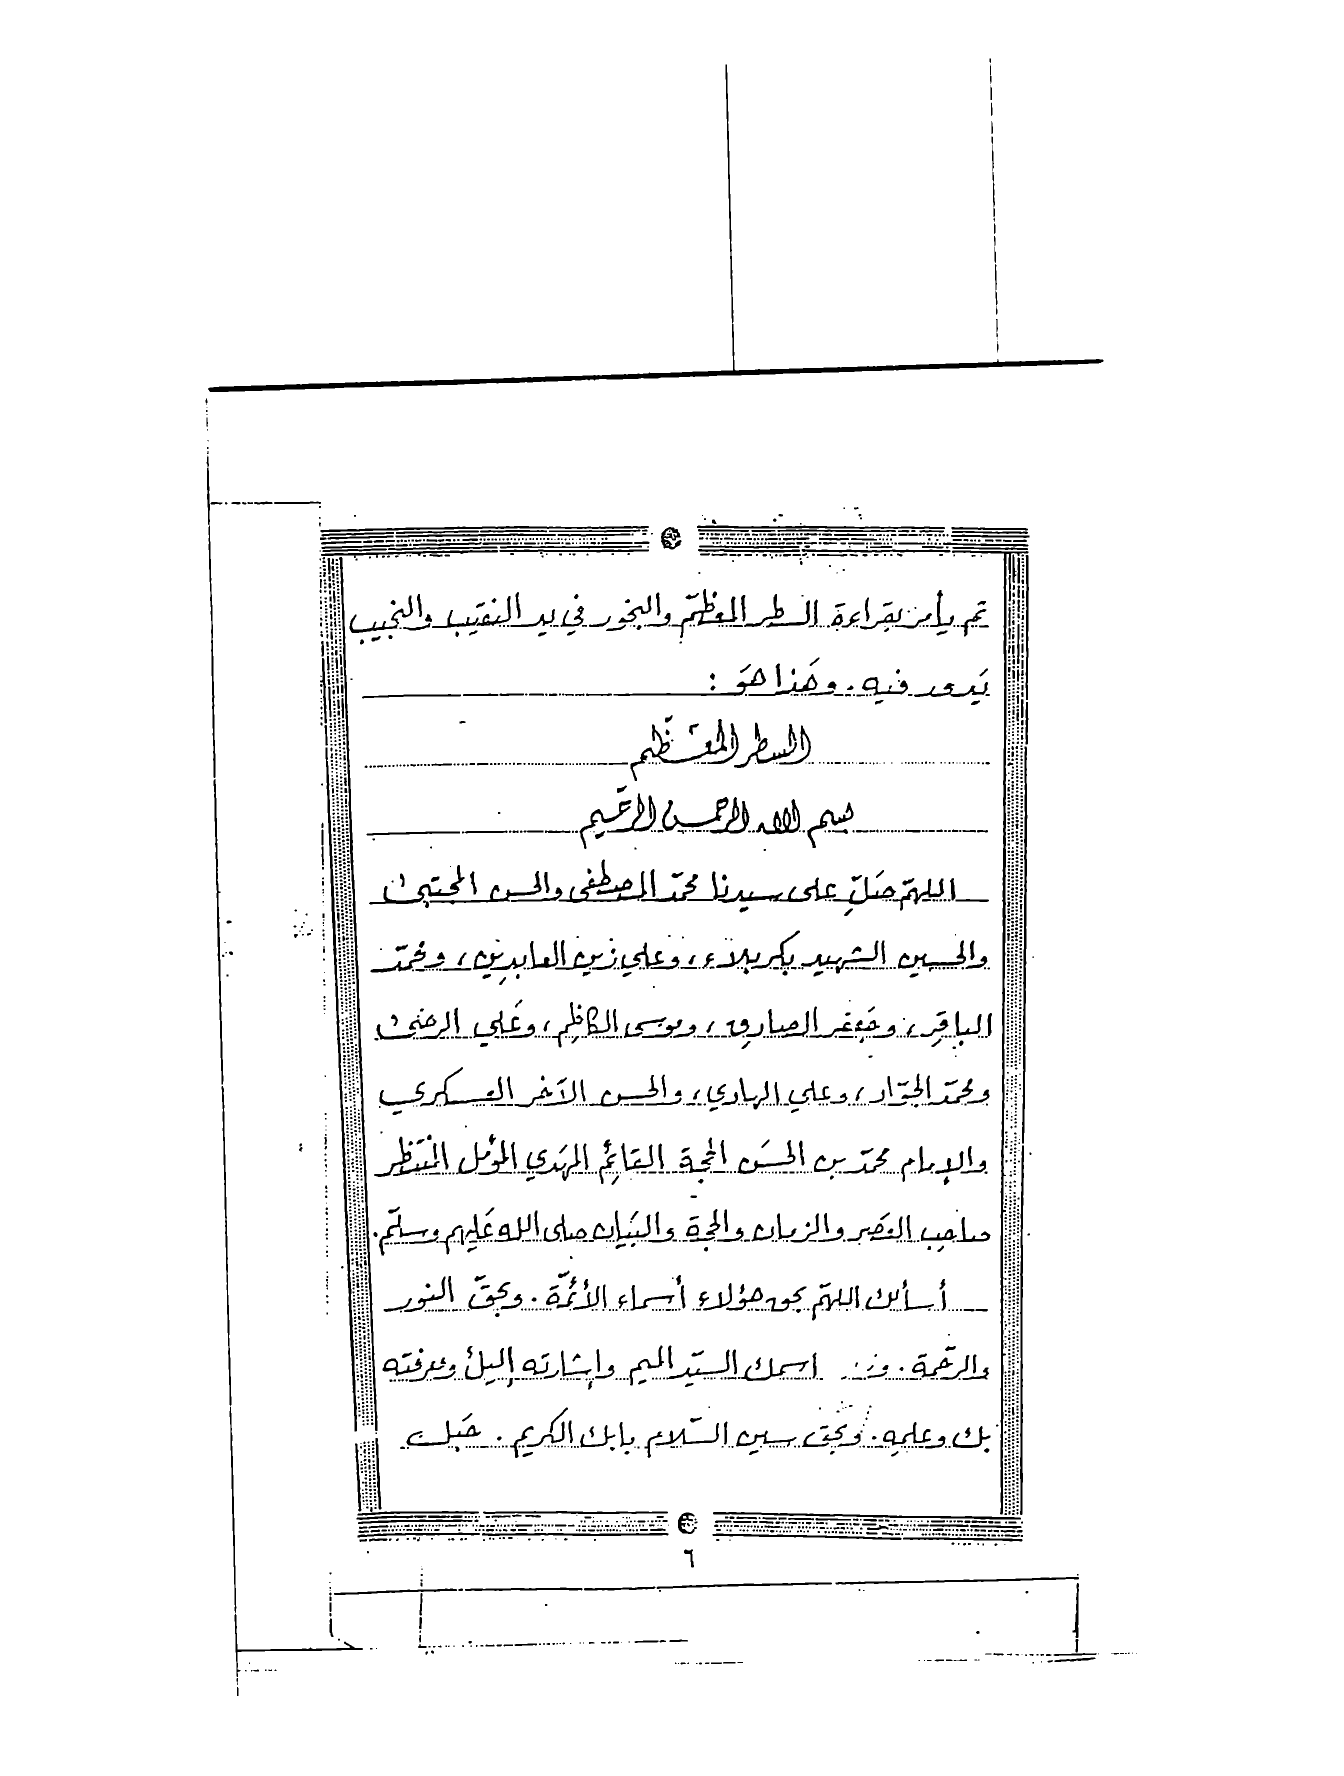 ثم يأمر بقراءة السطر المعظّم والبخور في يد النقيب والنجيب
يَدور فيه. وهَذا هوَ :
السطر المعَظّم
بسم الله الرحمن الرحَّيم
اللهمّ صَلِّ على سيدنا محمّد المصطفى والحسن المجتبى
والحسين الشهيد بكربلاء، وعلي زين العابدِين، ومحمّد
الباقِر، وجَعفر الصادِق، وموسى الكاظِم، وعَلي الرضى
ومحمّد الجوّاد، وعلي الهادي، والحسن الآخر العسكري
والإمام محمّد بن الحسَن الحجة القائِم المهَدي المؤمل المنتَظر
صاحِب العَصر والزمان والحجة والبَيان صلى الله عَليهم وسلّم.
أسألك اللهمّ بحق هؤلاء أسماء الأئمّة. وبحقّ النور
والرحَّمة. اسمك السيّد الميم وإشارته إليك ومعرفته
بك وعلمِه. وبحَق سين السّلام بابك الكريم.
٦